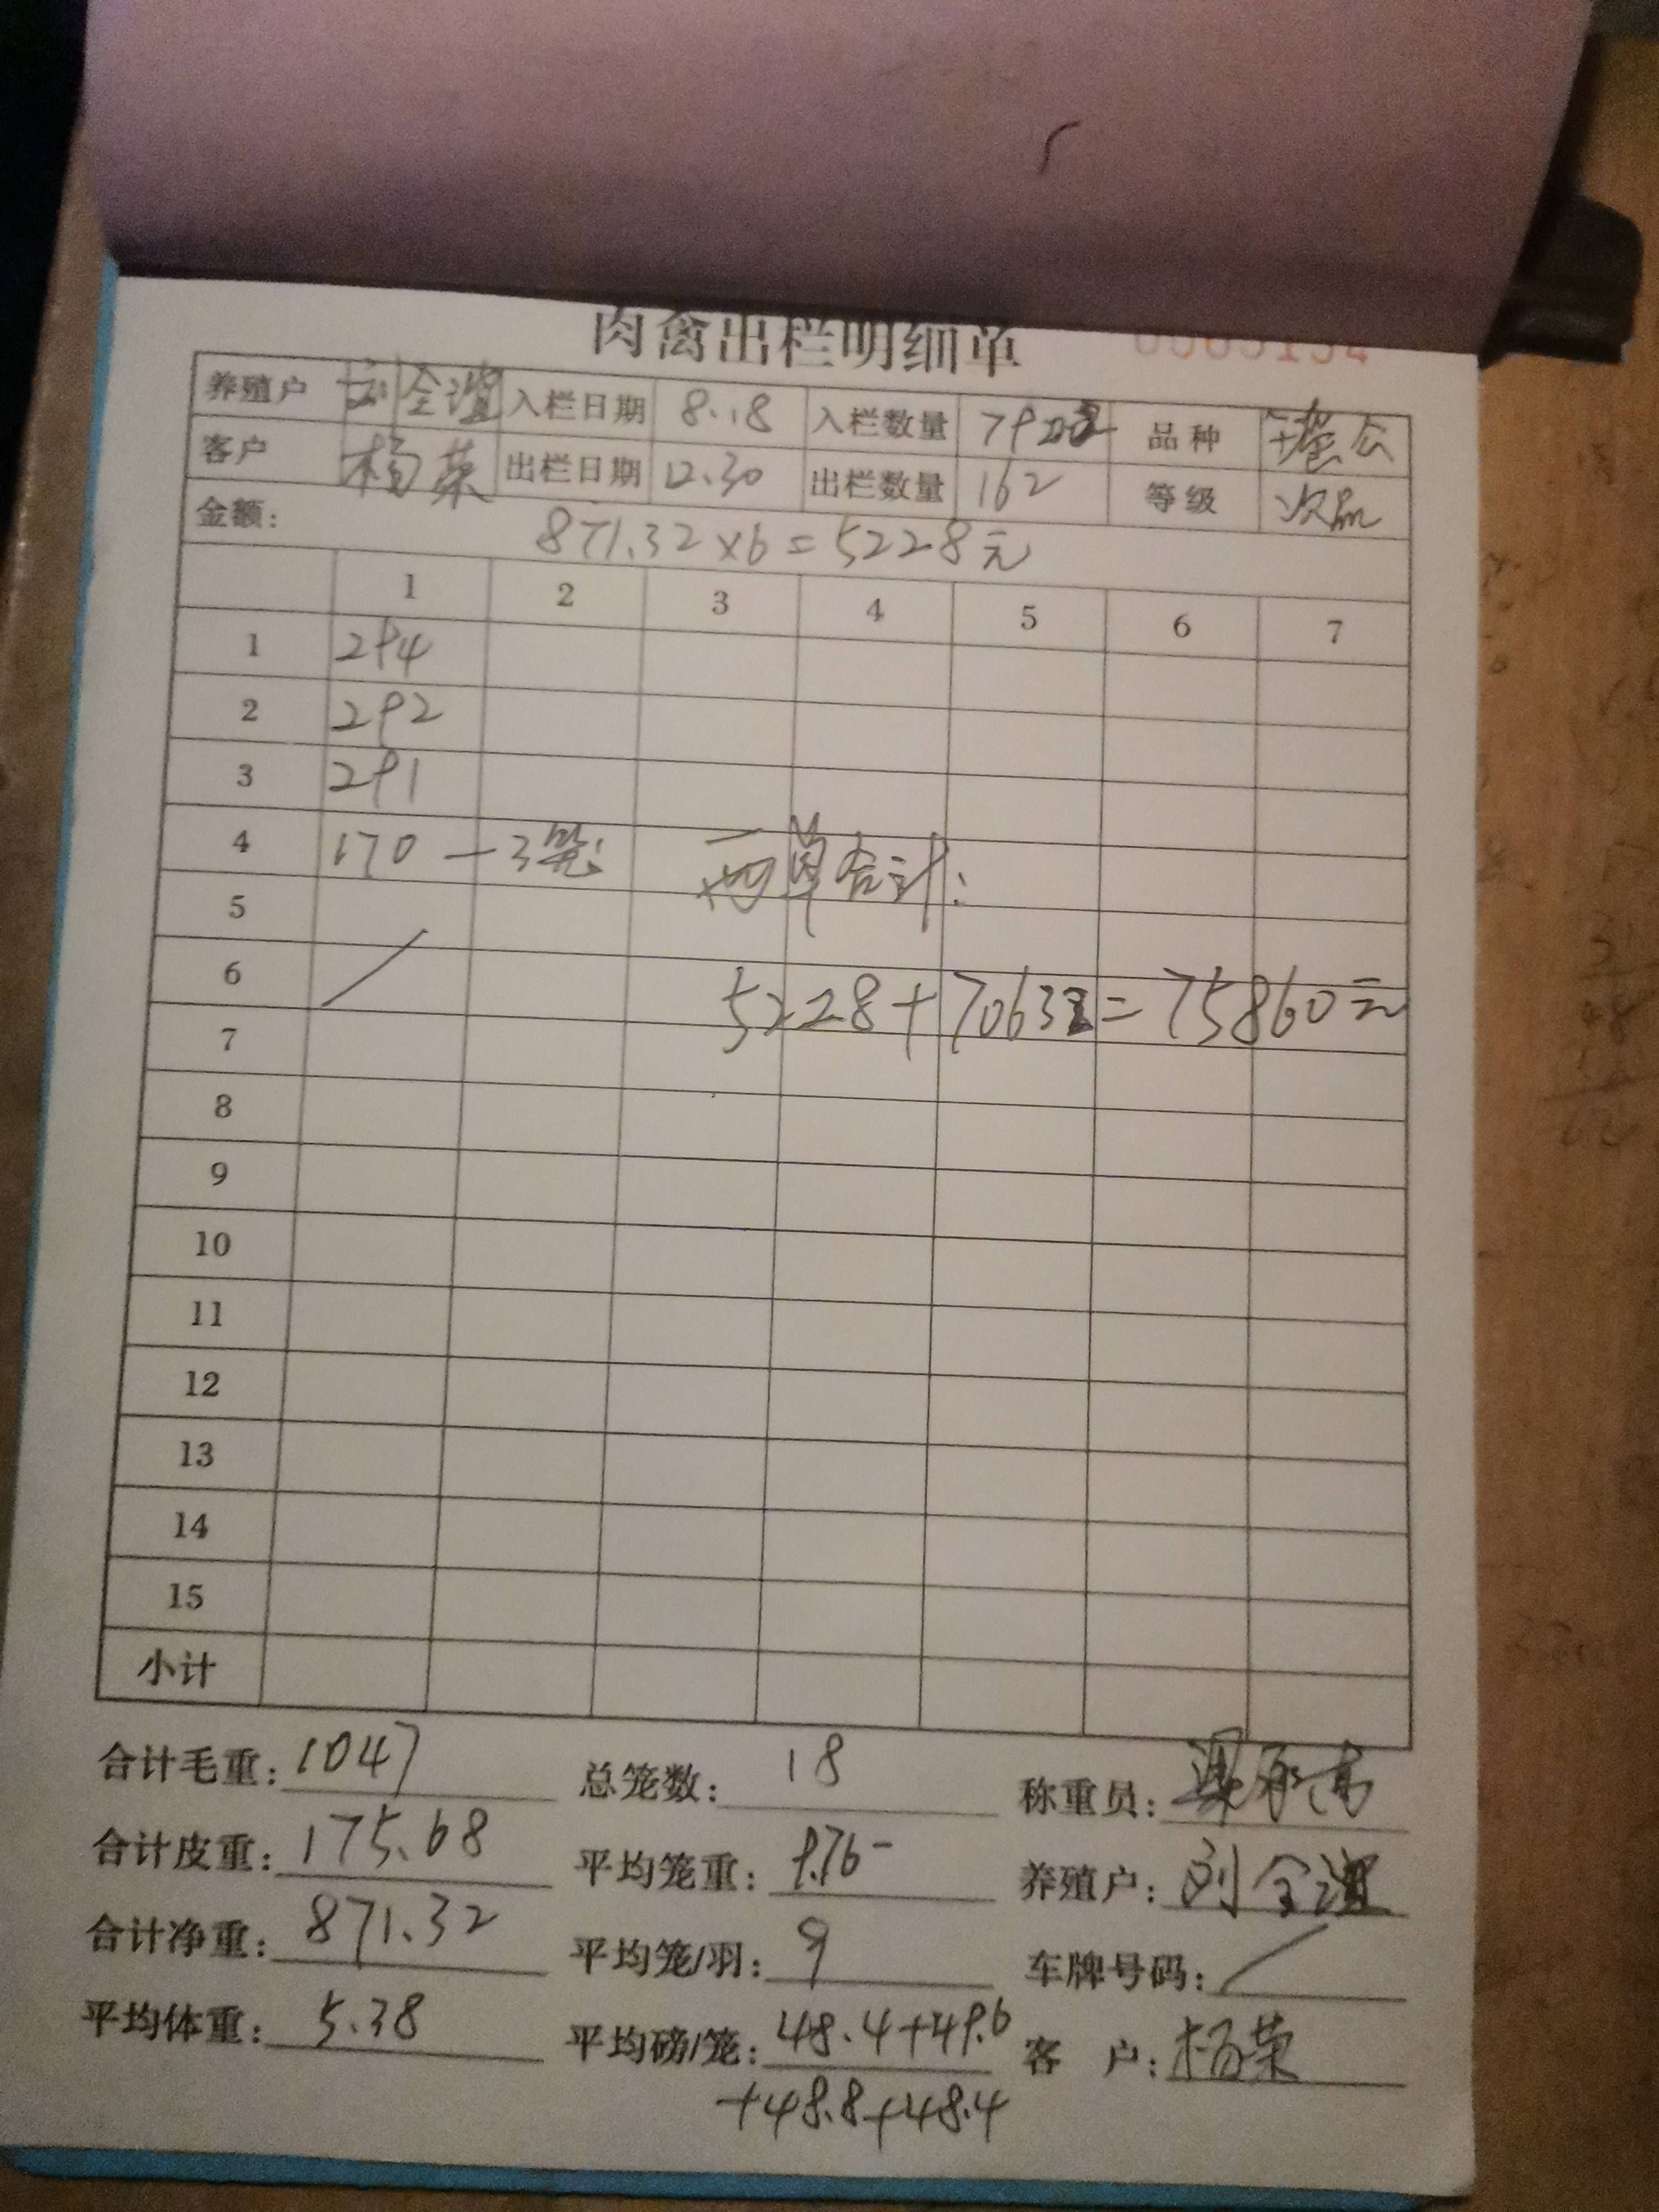 肉禽出栏明细单 0565154
养殖户 刘全谊 入栏日期 8.18 入栏数量 7900 品种 公
客户 杨荣 出栏日期 12.30 出栏数量 162 等级 次品
金额: 871.32×6=5228元
1 2 3 4 5 6 7
1 294
2 292
3 291
4 170 —3笼 两单合计:
5
6 5228+70632=75860元
7
8
9
10
11
12
13
14
15
小计
合计毛重: 1047 总笼数: 18 称重员:
合计皮重: 175.68 平均笼重: 9.76 养殖户: 刘全谊
合计净重: 871.32 平均笼/羽: 9 车牌号码: /
平均体重: 5.38 平均磅/笼: 48.4+49.6 客 户: 杨荣
+48.8+48.4